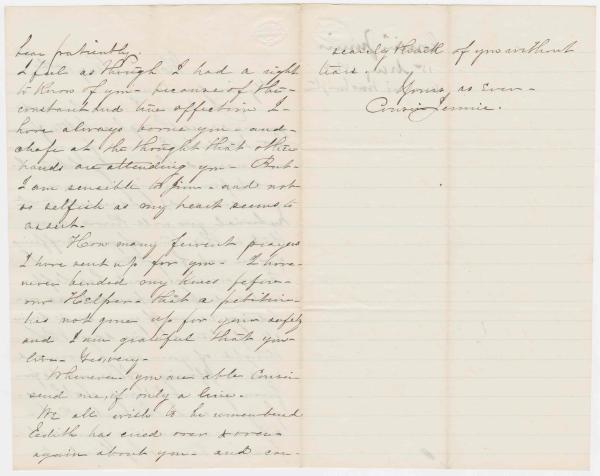 bear patiently.
I feel as though I had a right
to know of you - because of the
constant and true affection I -
have always borne you - and -
chafe at the thought that other
hands are attending you - But -
I am sensible to Jim - and not
as selfish as my heart seems to
assert.
How many fervent prayers
I have sent up for you - I have
never bended my knees before -
our Helper - that a petition -
has not gone up for your safety
and I am grateful that you
live -
Whenever you are able Cousin
send me, if only a line.
We all wish to be remembered
Eedith has cried over & over -
again about you - and can -
scarcely think of you without
tears.
Yours, as Ever -
Cousin Jennie.